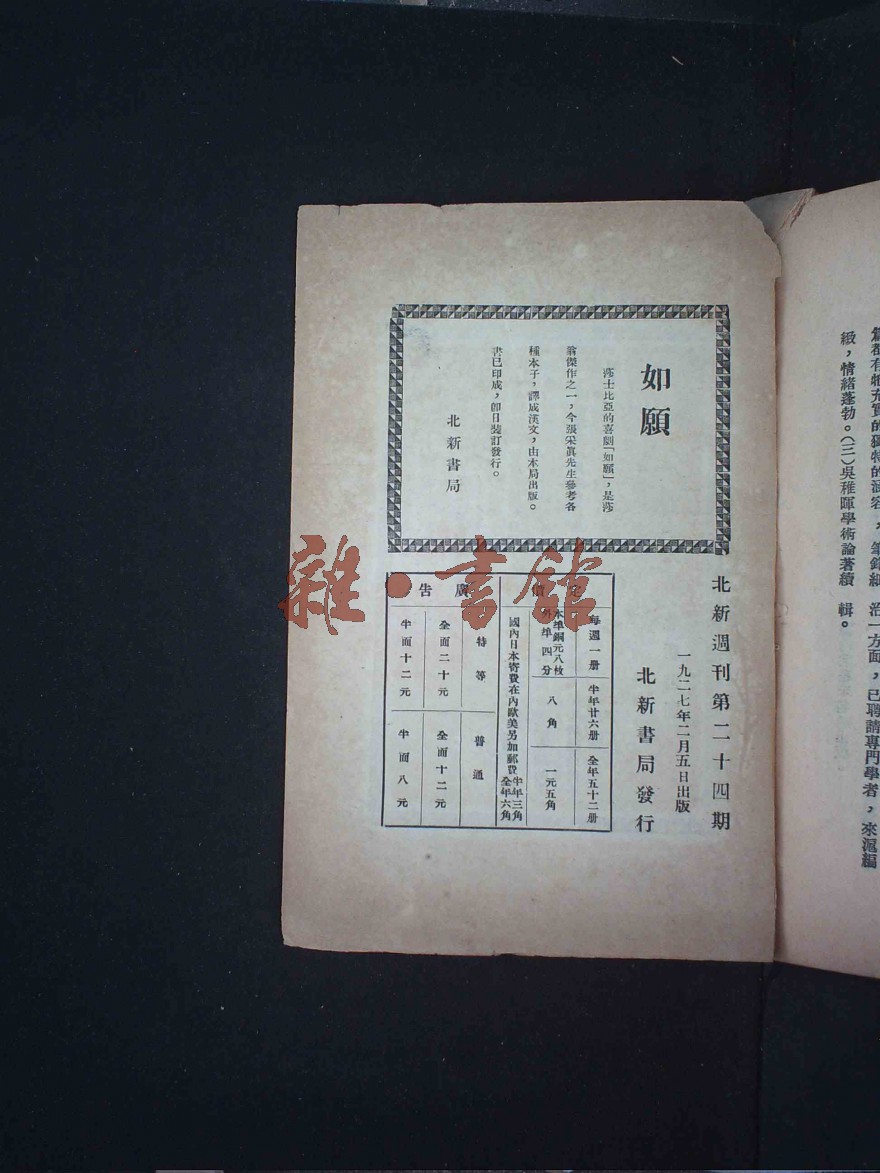 篇都有牠充實的獨特的涵容，筆鋒細
緻，情緒蓬勃。（三）吳稚暉學術論著續
浩一方面，已聘請專門學者，來滬編
輯。
如願
莎士比亞的喜劇「如願」，是莎
翁傑作之一，今張采眞先生參考各
種本子，譯成漢文，由本局出版。
書已印成，卽日裝訂發行。
北新書局
北新週刊第二十四期
一九二七年二月五日出版
北新書局發行
定價
每週一册
半年廿六册
全年五十二册
本埠銅元八枚
外埠四分
八角
一元五角
國內日本寄費在內歐美另加郵費
半年三角
全年六角
廣告
特等
普通
全面二十元
全面十二元
半面十二元
半面八元
雜·書館